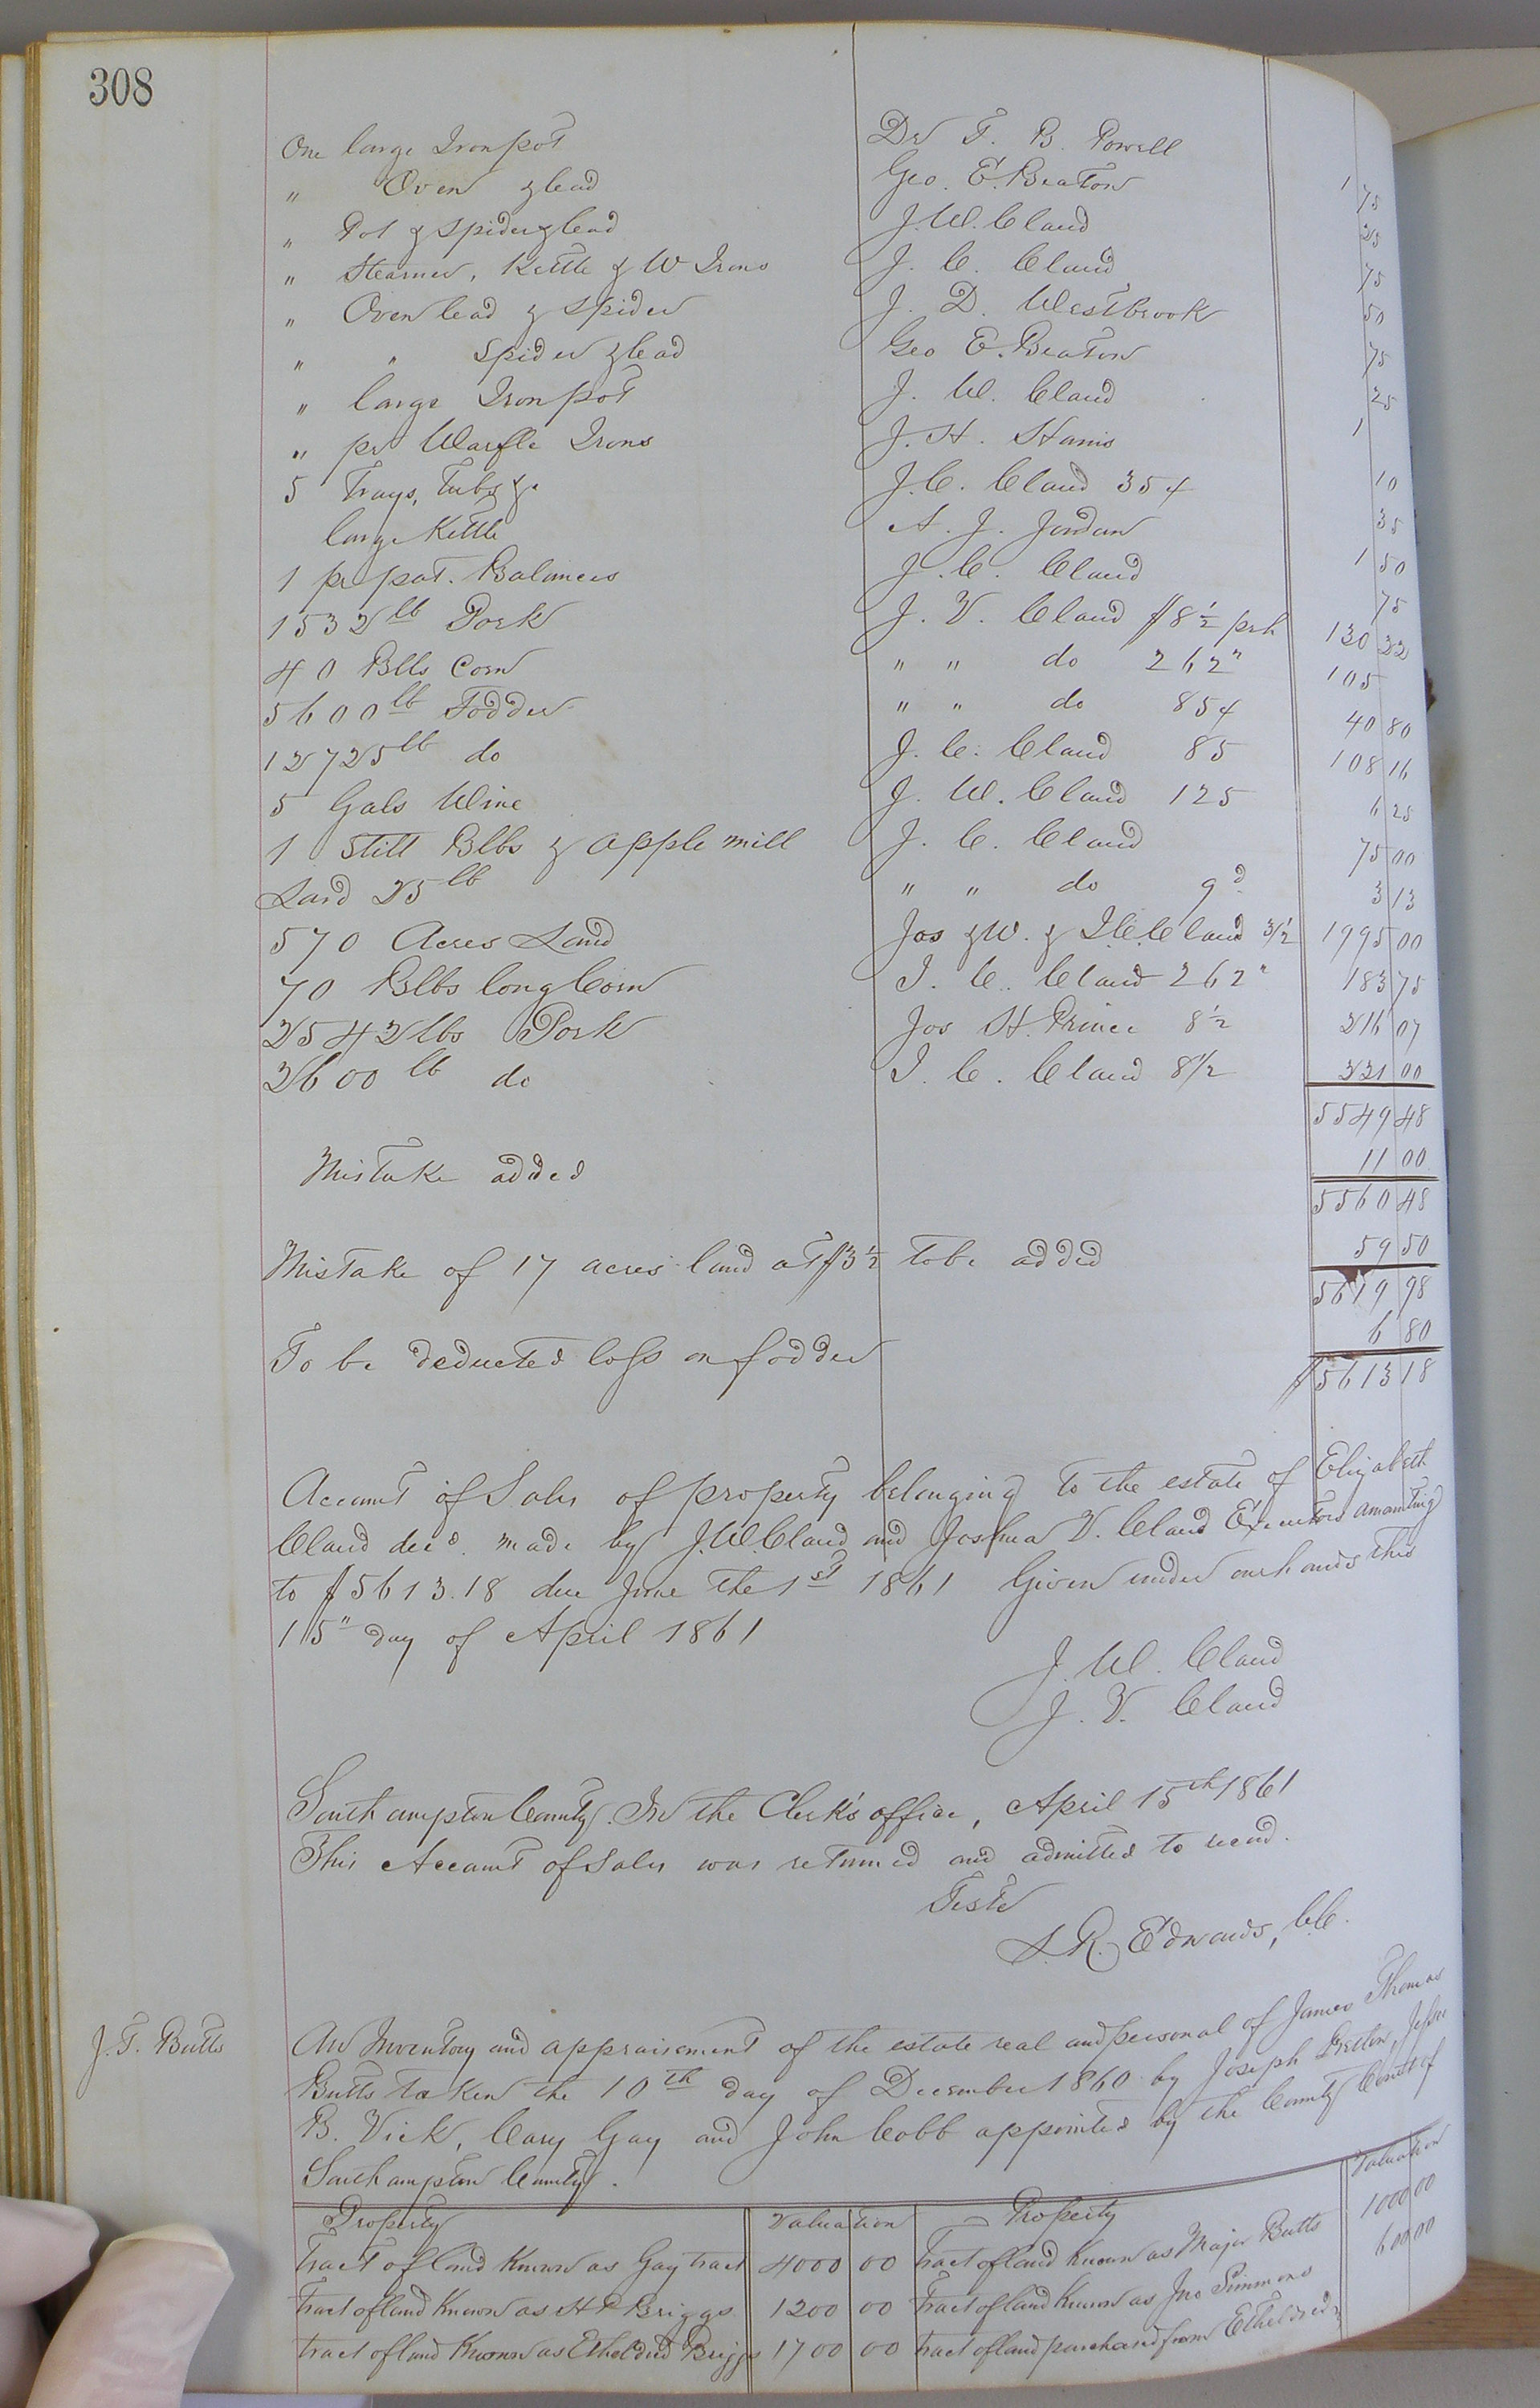 308
One large Iron pot Dr T. B. Powell 1 75
" Oven & lead Geo. E. Beaton 25
" Pot & spider & lead J. W. Claud 75
" Steamer, Kettle & W Irons J. C. Claud 50
" Oven lead & spider J. D. Westbrook 75
" " spider & lead Geo E. Beaton 25
" large Iron pot J. W. Claud 1
" pr Waffle Irons J. H. Harris 10
5 Trays, Tubs &c J. C. Claud 35 ¢ 35
large Kettle A. J. Jordan 1 50
1 pr pat. Balances J. C. Claud 75
1532 lb Pork J. V. Claud $8½ prh 130 22
40 Blls Corn " " do 262" 105
5600 lb Fodder " " do 85¢ 40 80
12725 lb do J. C. Claud 85 108 16
5 Gals Wine J. W. Claud 125 6 25
1 Still Blbs & apple mill J. C. Claud 75 00
Lard 25 lb " " do 9d 3 13
570 Acres Land Jos & W. & J. C. Claud 3½ 1995 00
70 Blbs long Corn J. C. Claud 262" 183 75
2542 lbs Pork Jos H. Prince 8½ 216 07
2600 lb do J. C. Claud 8½ 221 00
5549 48
Mistake added 11 00
5560 48
Mistake of 17 acres land at $3½ to be added 59 50
5619 98
To be deducted loss on fodder 6 80
$5613 18
Account of Sales of property belonging to the estate of Elizabeth
Claud decd. made by J. W. Claud and Joshua V. Claud Executors amounting
to $5613.18 due June the 1st 1861 Given under our hands this
15" day of April 1861
J. W. Claud
J. V. Claud
Southampton County. In the Clerk's office, April 15th 1861
This Account of Sales was returned and admitted to record.
Teste
L. R. Edwards, C.C.
J. T. Butts
An Inventory and appraisement of the estate real and personal of James Thomas
Butts taken the 10th day of December 1860 by Joseph Bretton, Jesse
B. Vick, Cary Gay and John Cobb appointed by the County Court of
Southampton County.
Property Valuation Property Valuation
Tract of land Known as Gay tract 4000 00 Tract of land Known as Major Butts 1000 00
Tract of land Known as H P Briggs 1200 00 Tract of land Known as Jno Simmons 600 00
Tract of land Known as Etheldred Briggs 1700 00 Tract of land purchased from Etheldred